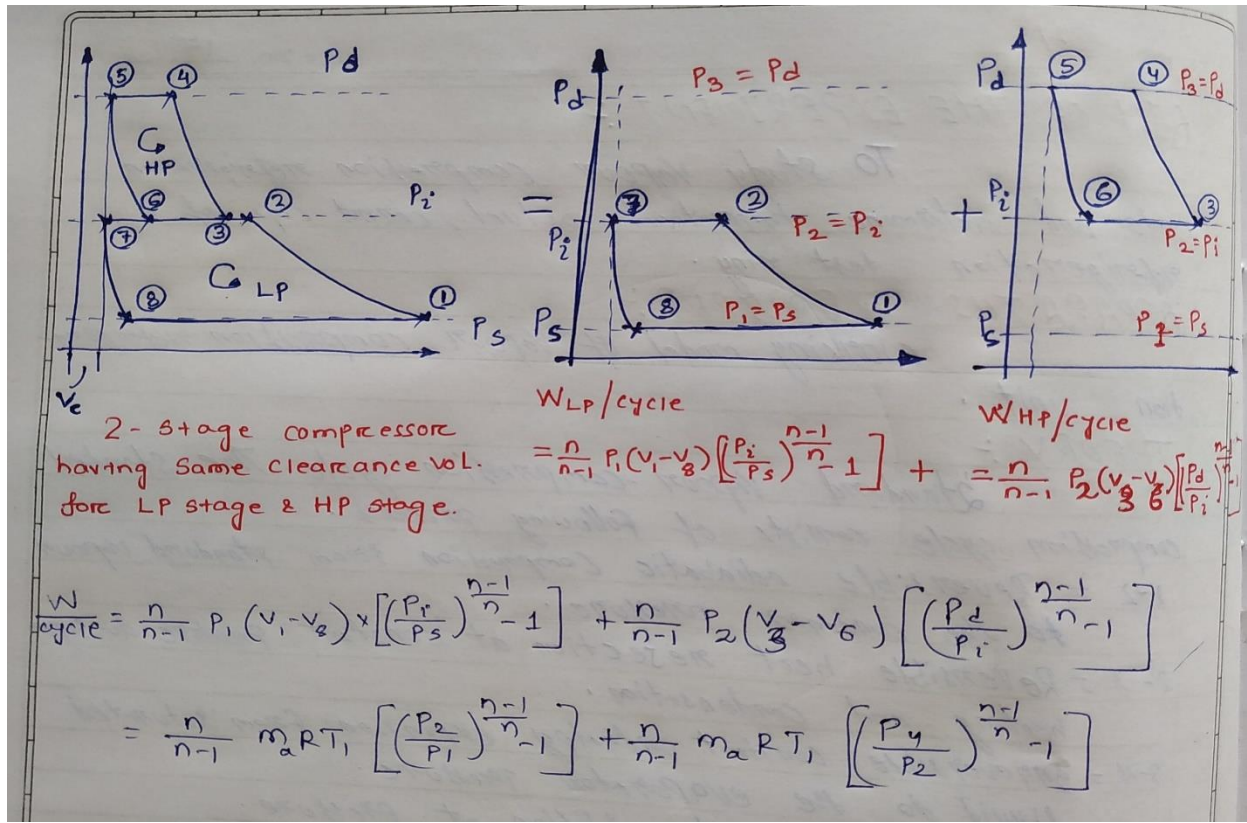 Pd
⑤ ④
HP
⑥ ② Pi
⑦ ③
LP
⑧ ① Ps
Vc
=
Pd P3 = Pd
⑦ ② P2 = Pi
Pi
⑧ P1 = Ps ①
Ps
+
Pd ⑤ ④ P3=Pd
Pi ⑥ ③
P2=Pi
Ps P1 = Ps
2-Stage compressore
having Same clearance vol.
fore LP stage & HP stage.
WLP/cycle
= n/n-1 P1(V1-V8)[(Pi/Ps)^n-1/n - 1] +
WHP/cycle
= n/n-1 P2(V3-V6)[(Pd/Pi)^n-1/n -1]
W/cycle = n/n-1 P1(V1-V8)×[(Pi/Ps)^n-1/n - 1] + n/n-1 P2(V3-V6)[(Pd/Pi)^n-1/n -1]
= n/n-1 maRT1 [(P2/P1)^n-1/n -1] + n/n-1 maRT1 [(P4/P2)^n-1/n -1]